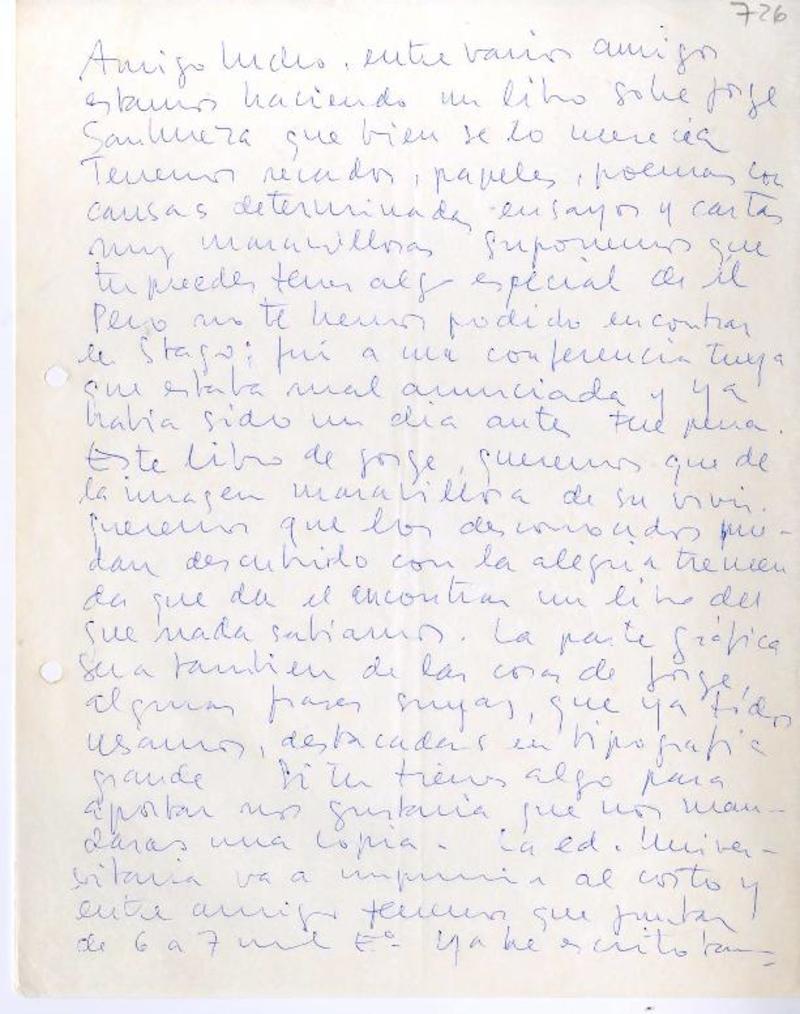 726
Amigo Lucho, entre varios amigos
estamos haciendo un libro sobre Jorge
Sanhueza que bien se lo merecía
Tenemos recados, papeles, poemas con
causas determinadas ensayos y cartas
muy maravillosas suponemos que
tu puedes tener algo especial de él
Pero no te hemos podido encontrar
en Stago; fuí a una conferencia tuya
que estaba mal anunciada y ya
habia sido un dia antes Fue pena.
Este libro de Jorge, queremos que de
la imagen maravillosa de su vivir.
queremos que los desconocidos pue-
dan descubrirlo con la alegria tremen
da que da el encontrar un libro del
que nada sabiamos. La parte gráfica
sera tambien de las cosas de Jorge,
algunas frases suyas, que ya todos
usamos, destacadas en tipografia
grande Si tu tienes algo para
aportar nos gustaria que nos man-
daras una copia. La ed. Univer-
sitaria va a imprimir al costo y
entre amigos tenemos que juntar
de 6 a 7 mil Eº. Ya he escrito tan=